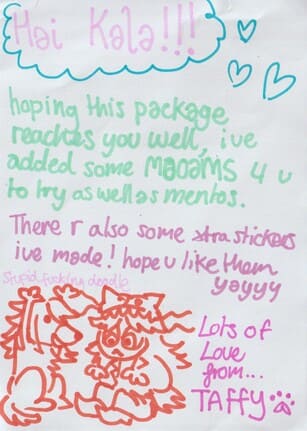 Hai Kala!!!
hoping this package
reaches you well, ive
added some MAOAMS 4 u
to try as well as mentos.
There r also some stickers
ive made! hope u like them
yayyy
stupid fucking doodle
Lots of
Love
from...
TAFFY